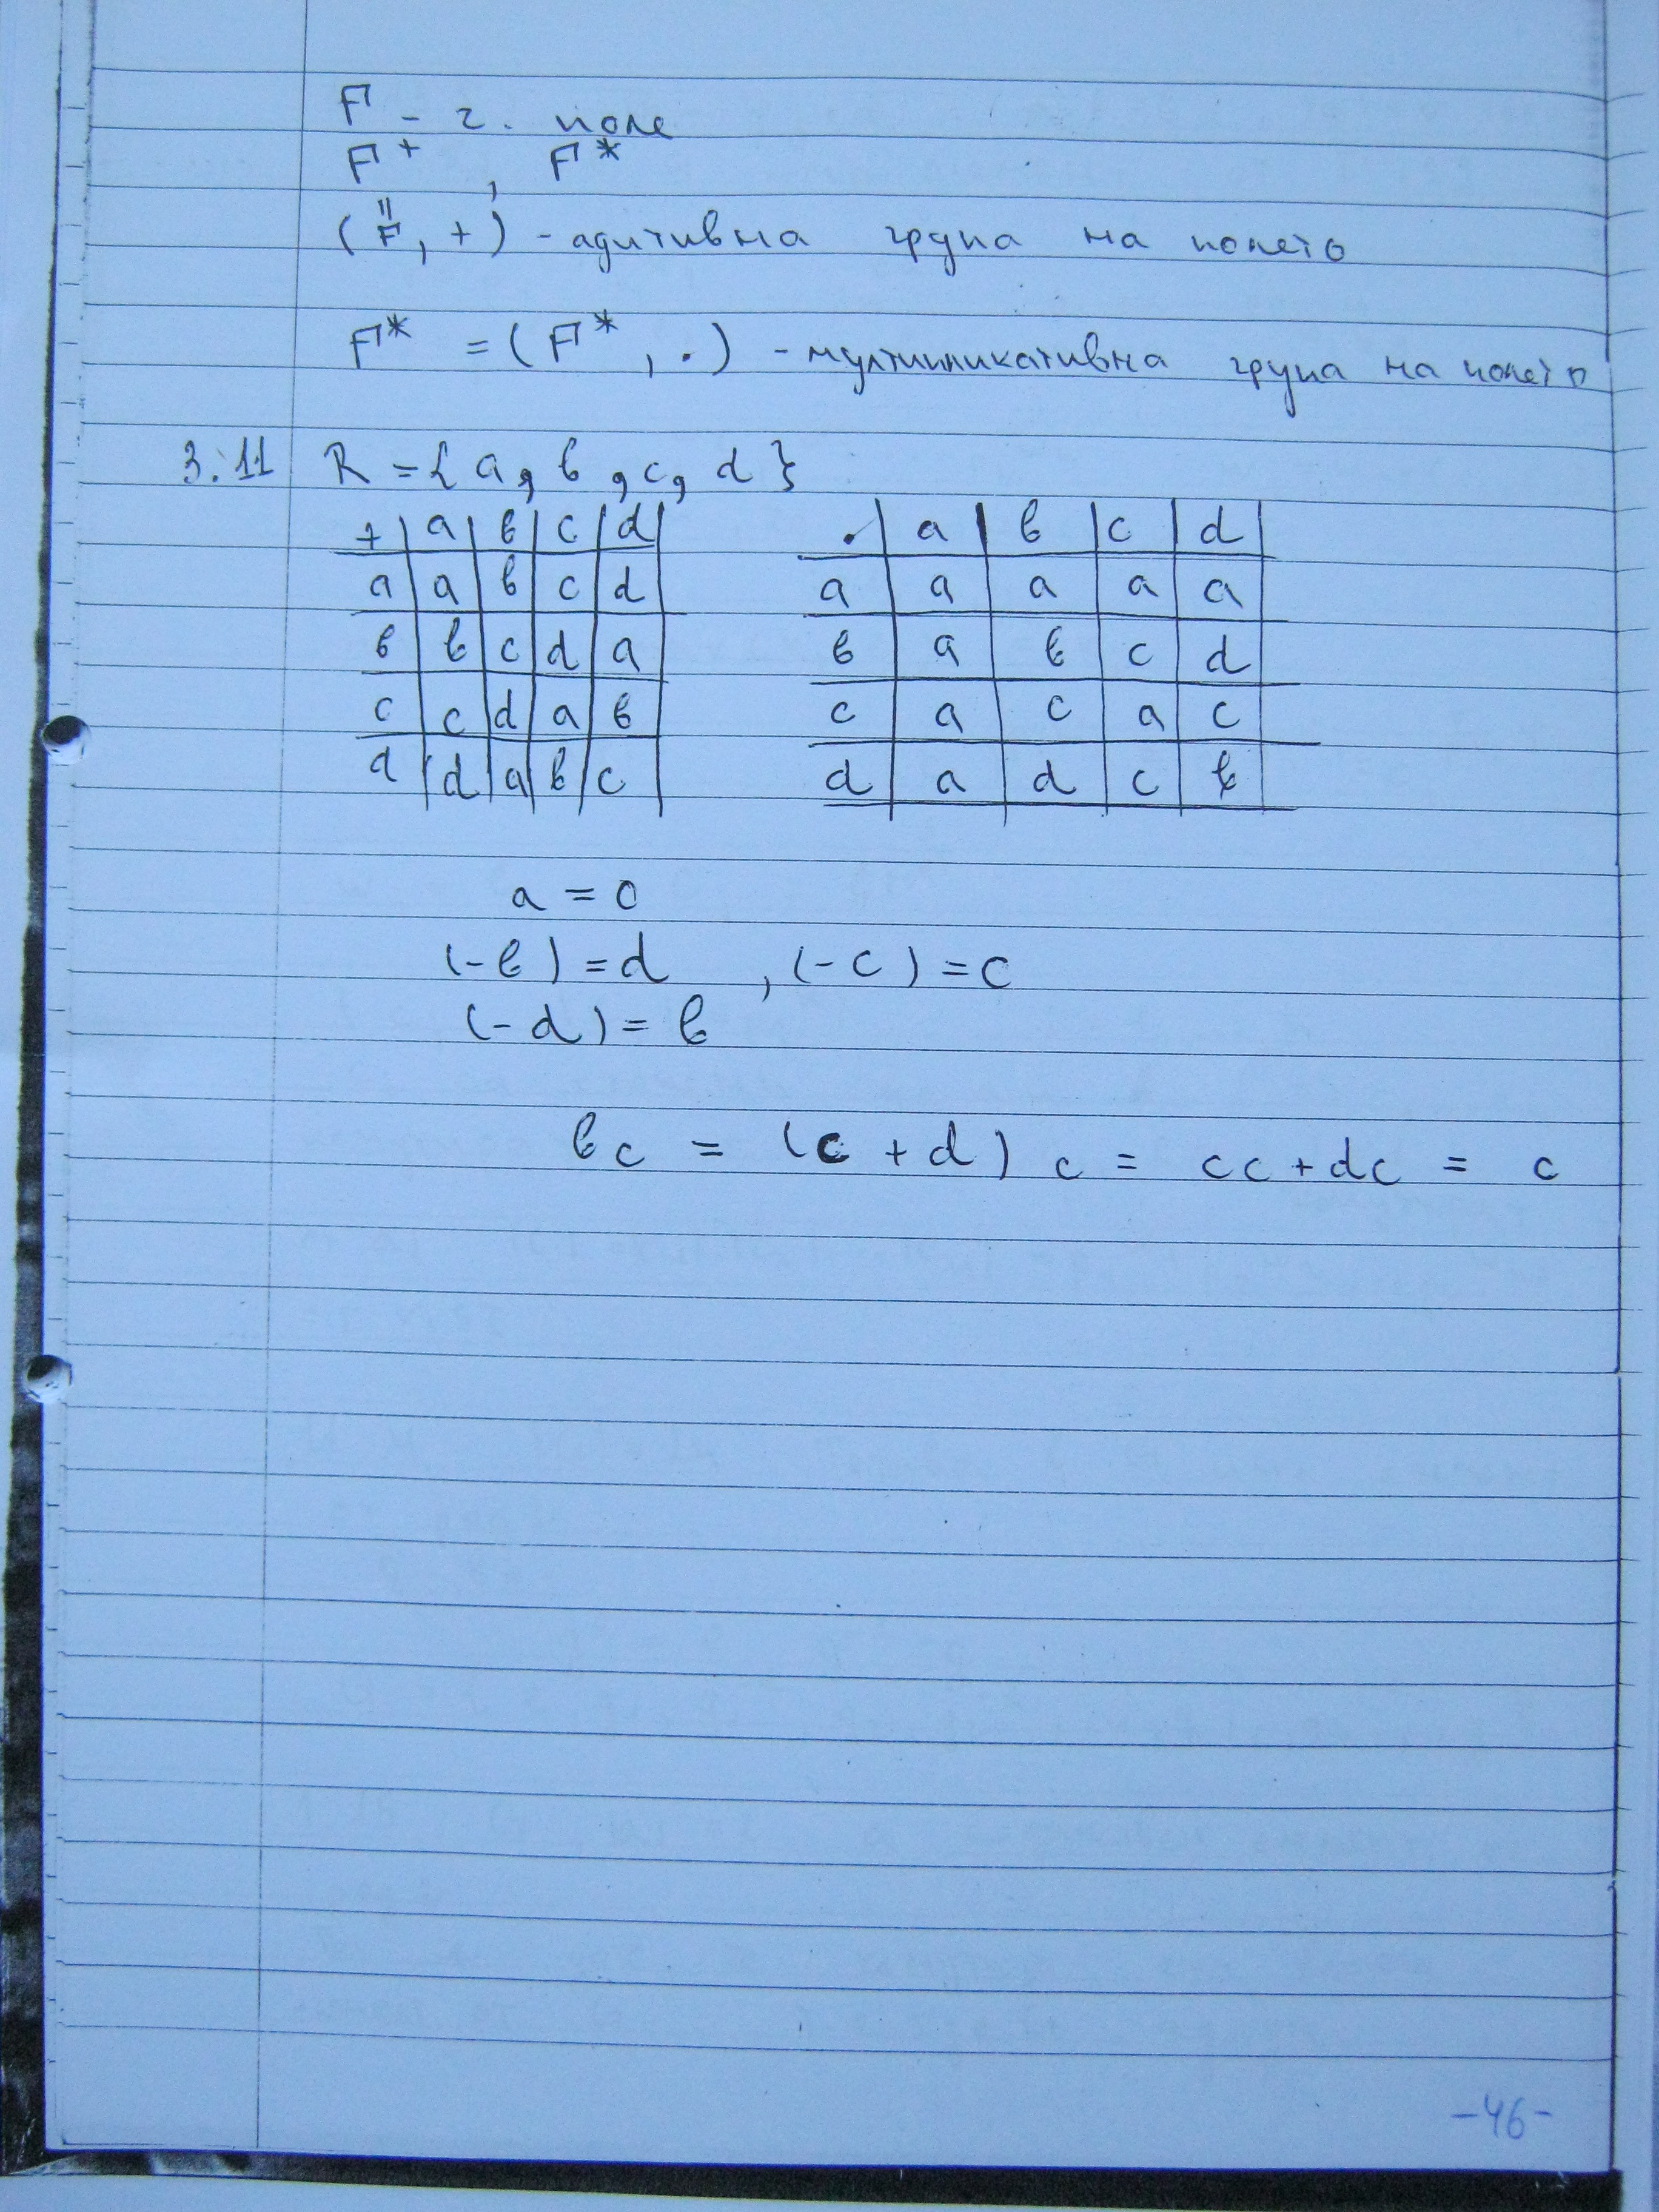 F - г. поле
F⁺ , F*
(F, +) - адитивна група на полето
F* = (F*, .) - мултипликативна група на полето
3.11 R = {a, b, c, d}
+ | a | b | c | d |
a | a | b | c | d
b | b | c | d | a
c | c | d | a | b
d | d | a | b | c
. | a | b | c | d |
a | a | a | a | a
b | a | b | c | d
c | a | c | a | c
d | a | d | c | b
a = 0
(-b) = d , (-c) = c
(-d) = b
bc = (c + d) c = cc + dc = c
-46-